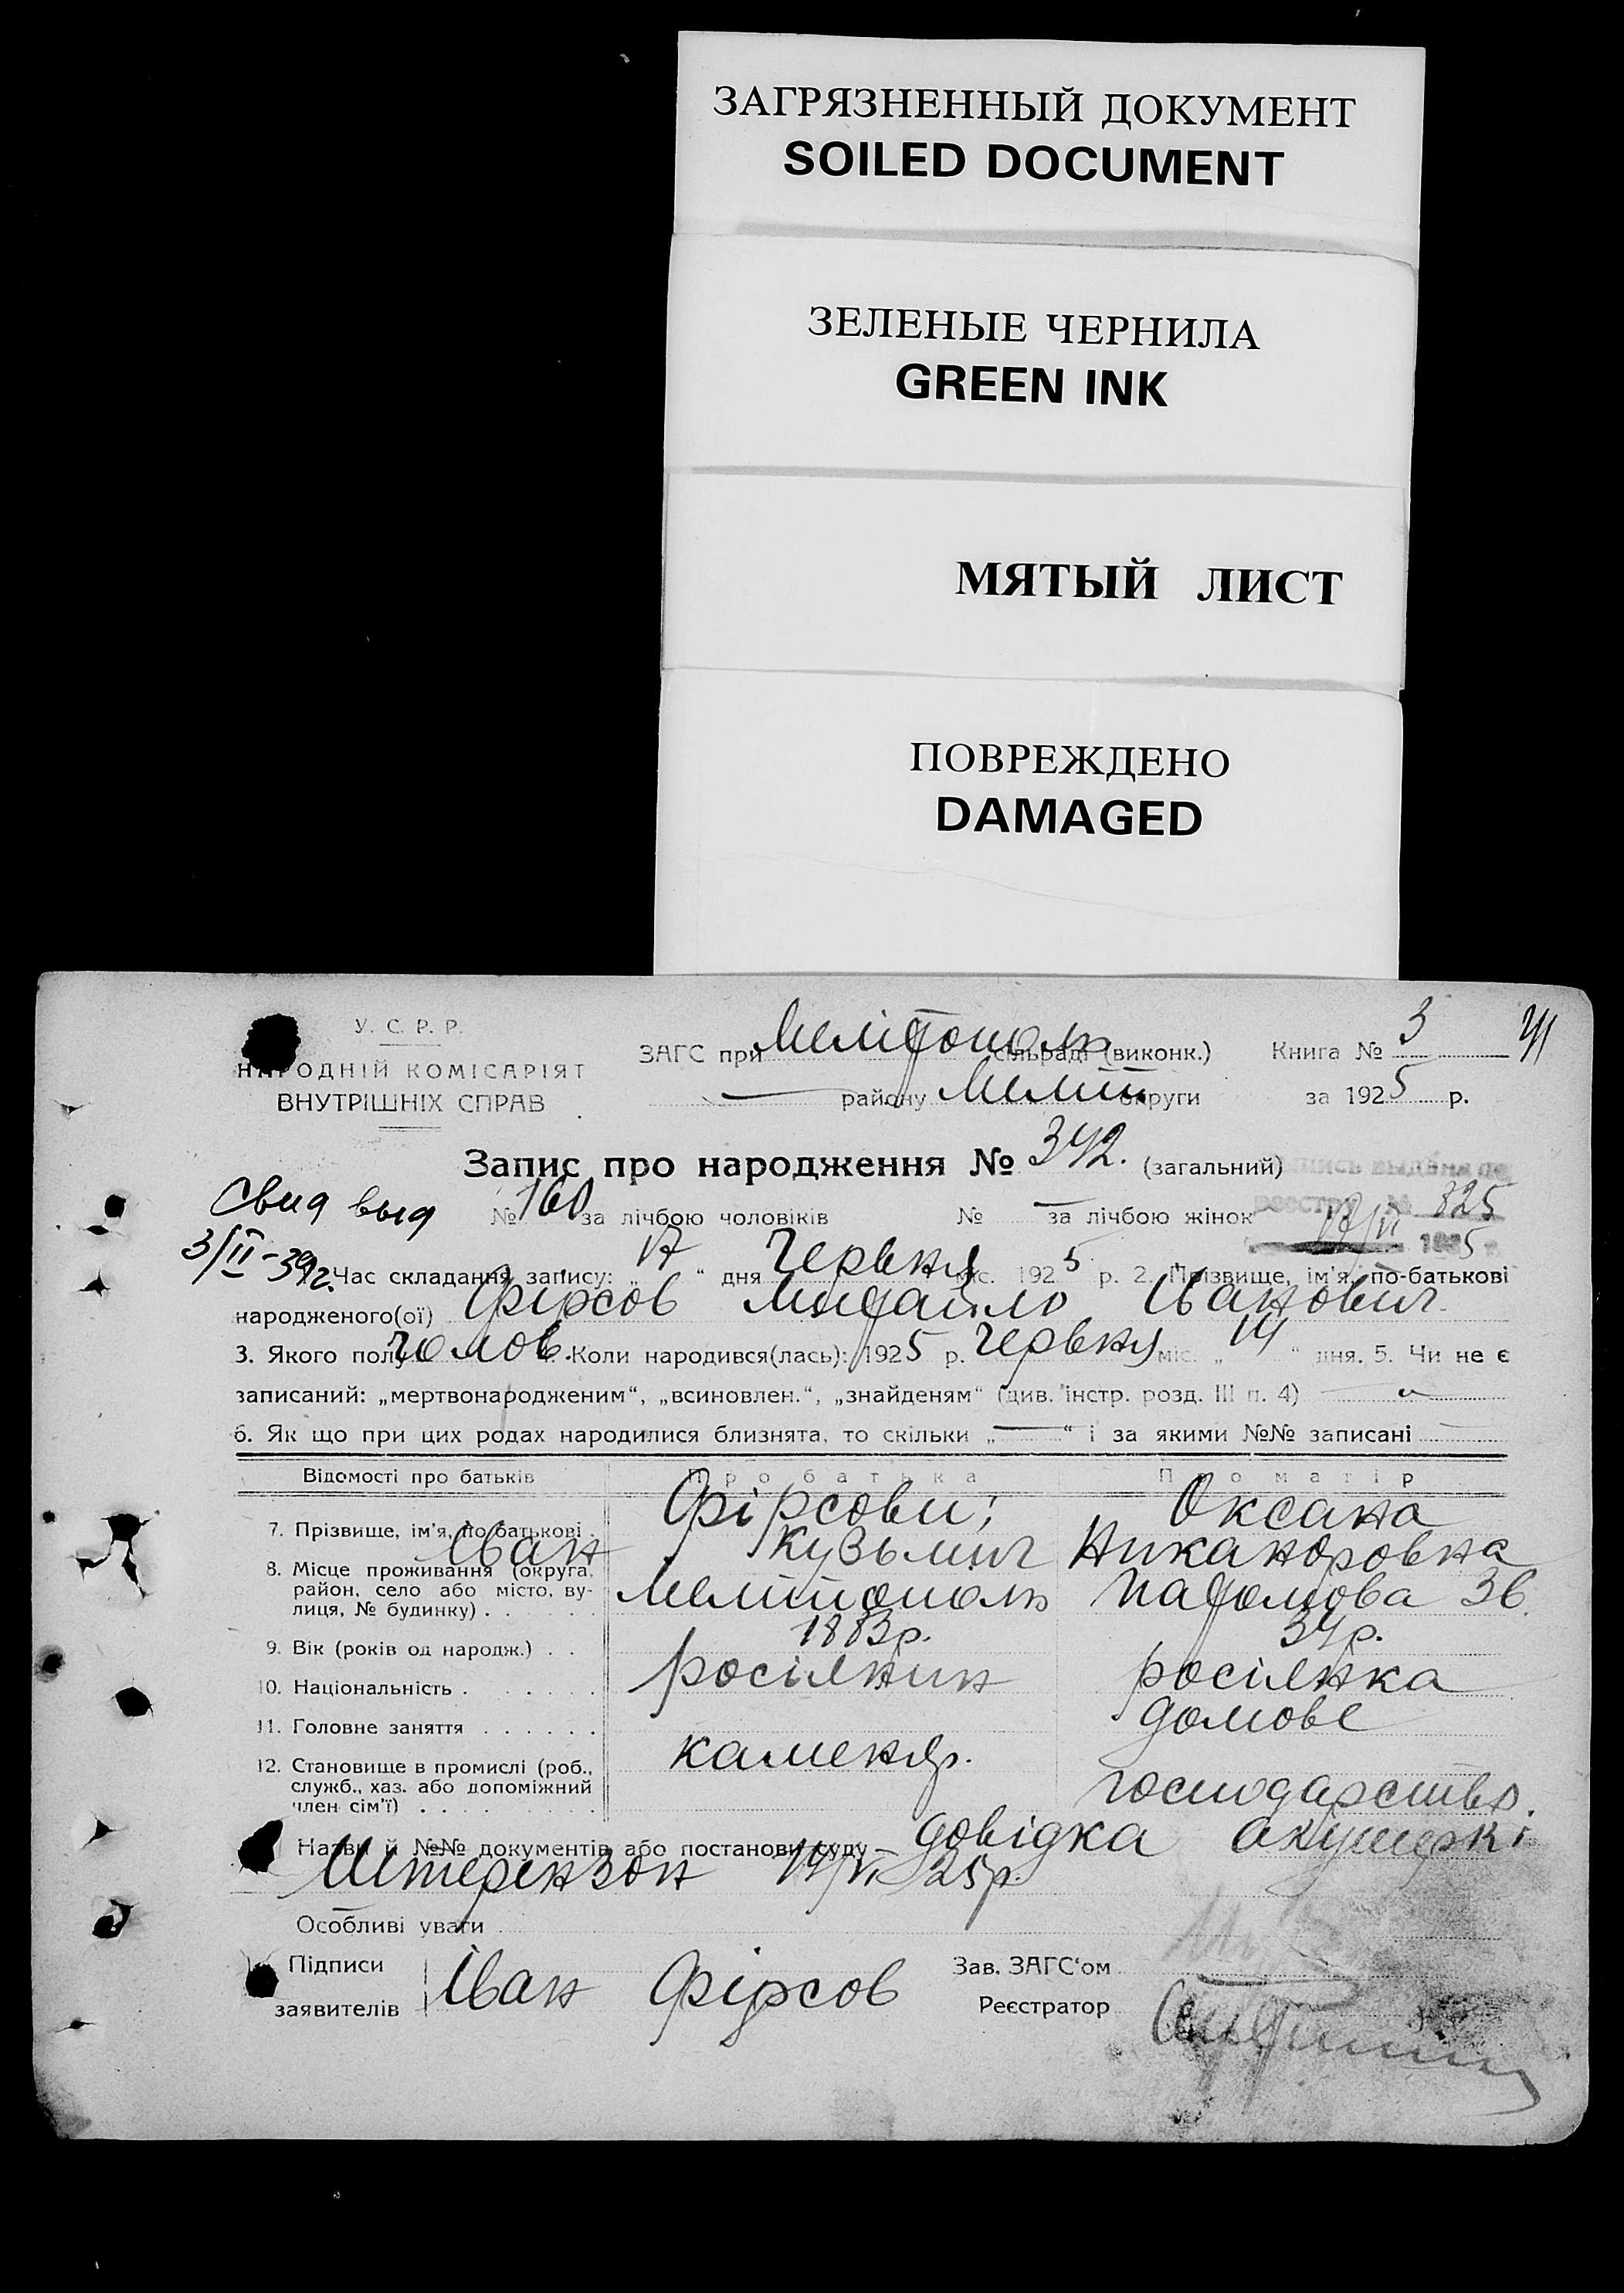 ЗАГРЯЗНЕННЫЙ ДОКУМЕНТ
SOILED DOCUMENT
ЗЕЛЕНЫЕ ЧЕРНИЛА
GREEN INK
МЯТЫЙ ЛИСТ
ПОВРЕЖДЕНО
DAMAGED
У. С. Р. Р.
НАРОДНІЙ КОМІСАРІЯТ
ВНУТРІШНІХ СПРАВ
ЗАГС при Мелітополь сільраді (виконк.)
району Меліт округи
Книга № 3
за 1925 р.
Запис про народження № 342. (загальний)
Запись выдана по
реестру № 825
17/VI 1925
Свид выд
3/II-39г.
№ 160 за лічбою чоловіків № — за лічбою жінок
Час складання запису: „17“ дня Червня міс. 1925 р. 2. Прізвище, ім'я, по-батькові
народженого(ої) Фірсов Михайло Іванович
3. Якого полу чолов. Коли народився(лась): 1925 р. Червня міс. „14“ дня. 5. Чи не є
записаний: „мертвонародженим“, „всиновлен.“, „знайденям“ (див. інстр. розд. III п. 4)
6. Як що при цих родах народилися близнята, то скільки „—“ і за якими №№ записані
Відомості про батьків Про батька Про матір
7. Прізвище, ім'я, по батькові Фірсови; Оксана
Іван Кузьмич Никаноровна
8. Місце проживання (округа, район, село або місто, вулиця, № будинку) Мелітополь 36.
9. Вік (років од народж.) 1883р. 34р.
10. Національність росіянин росіянка
11. Головне заняття домове
12. Становище в промислі (роб., служб., хаз. або допоміжний член сім'ї) каменяр. господарство.
Назви й №№ документів або постанови суду довідка акушерки
Штерензон 14/VI 25р.
Особливі уваги
Підписи
заявителів Іван Фірсов
Зав. ЗАГС'ом
Реєстратор